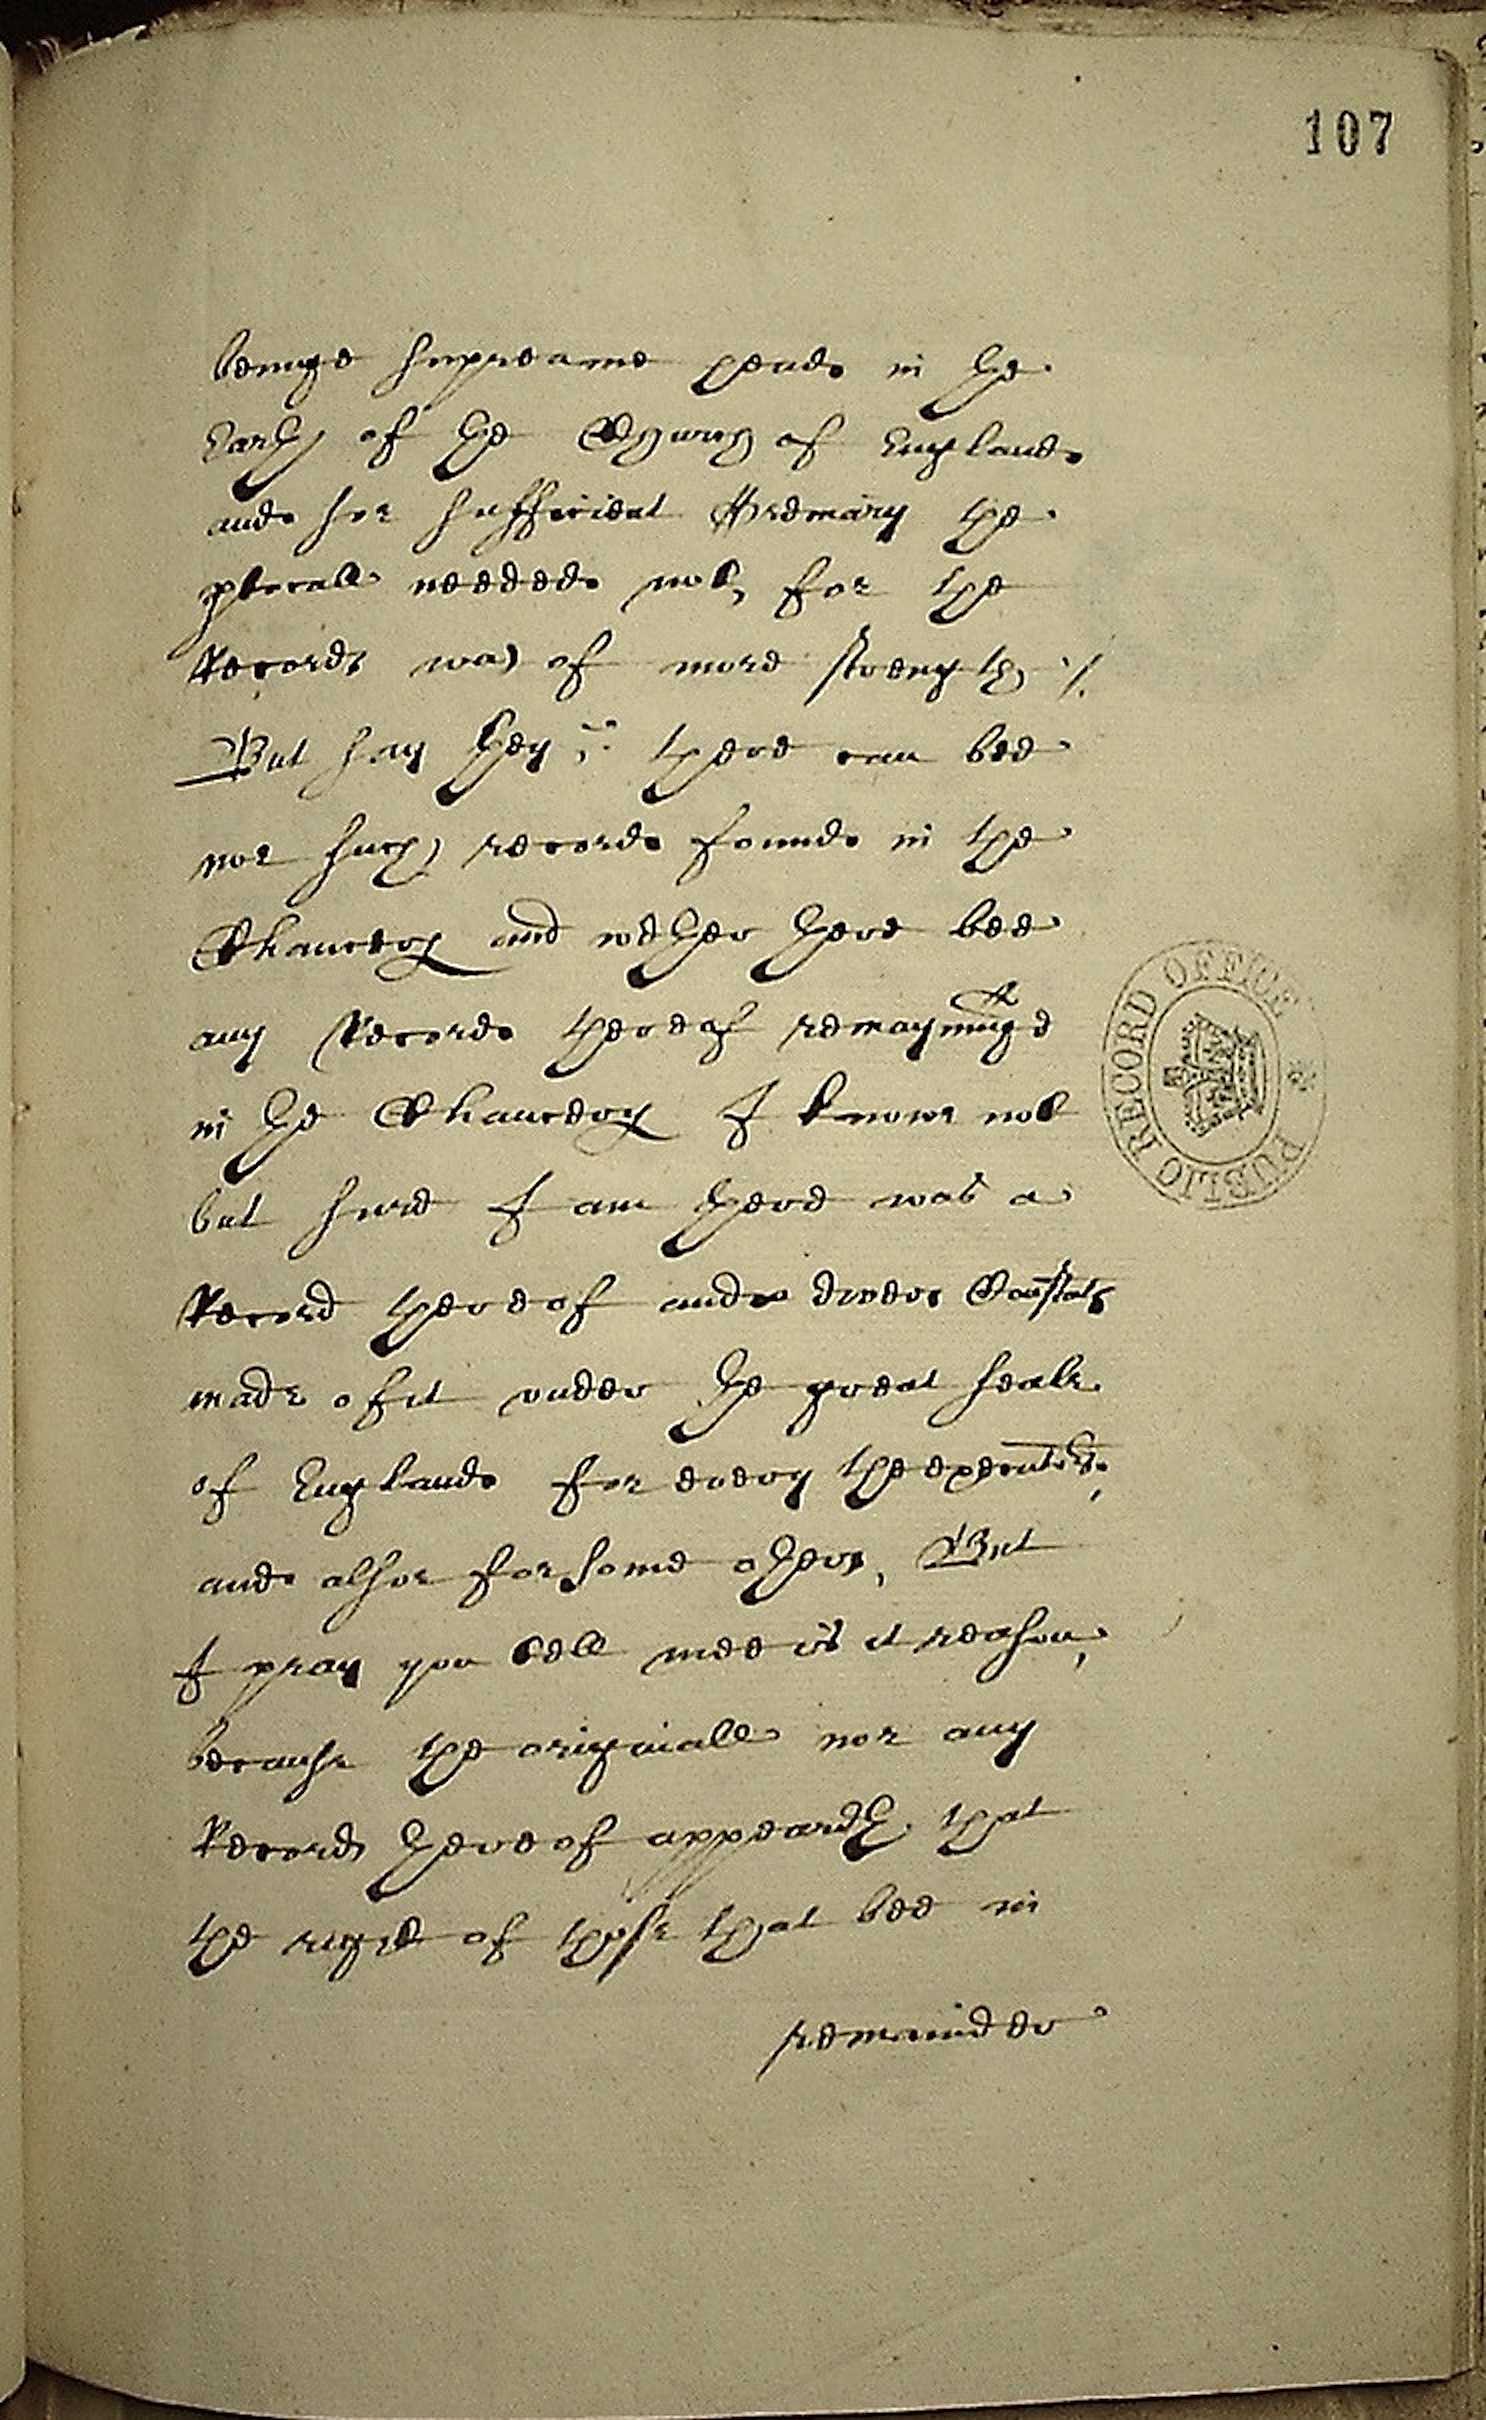 107
beinge supreame heade in the
Earth of the Church of England
and so sufficient Ordinary the
placall needed not, for the
Records was of more strength ./.
But say they, there can bee
noe such records found in the
Chancery and whether there bee
any Records thereof remayninge
in the Chancery I knowe not
but sure I am there was a
Record thereof and divers Constats
made of it under the great seale
of England for every
and alsoe for some others, But
I pray you tell mee is it reason,
because the originall nor any
Records thereof appeareth that
the right of those that bee in
remainder
PUBLIC RECORD OFFICE